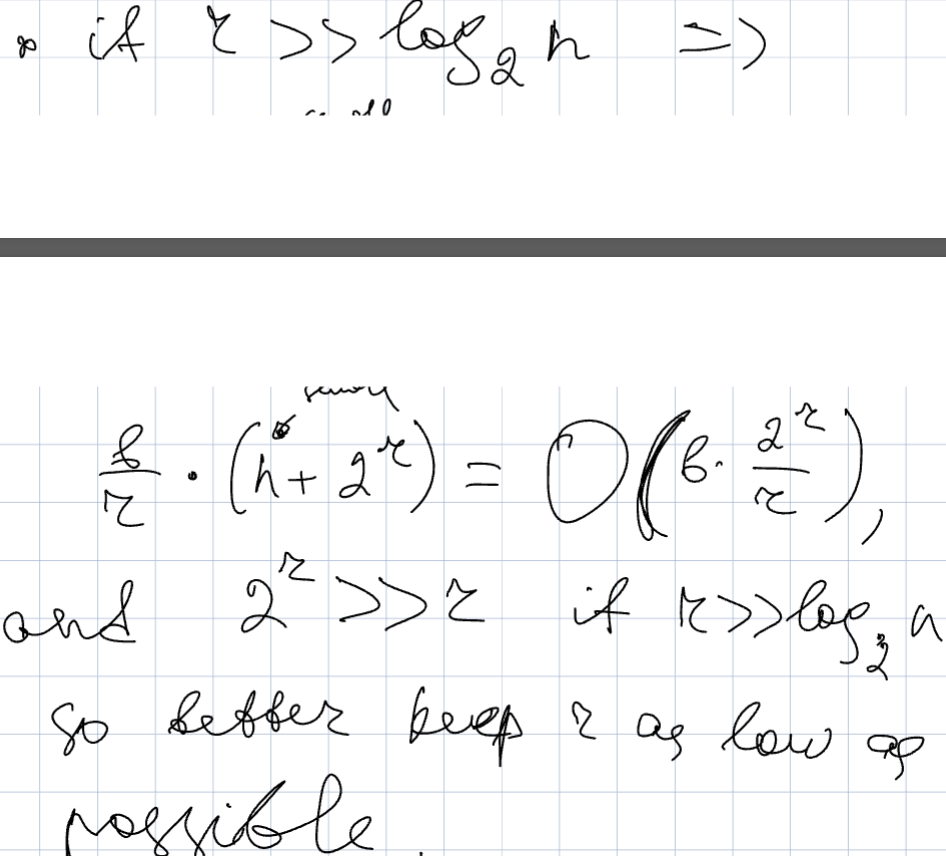 • if r >> log₂ n =>
small
b/r · (n + 2^r) = O(b · 2^r/r),
and 2^r >> r if r >> log₂ n
so better keep r as low as
possible.